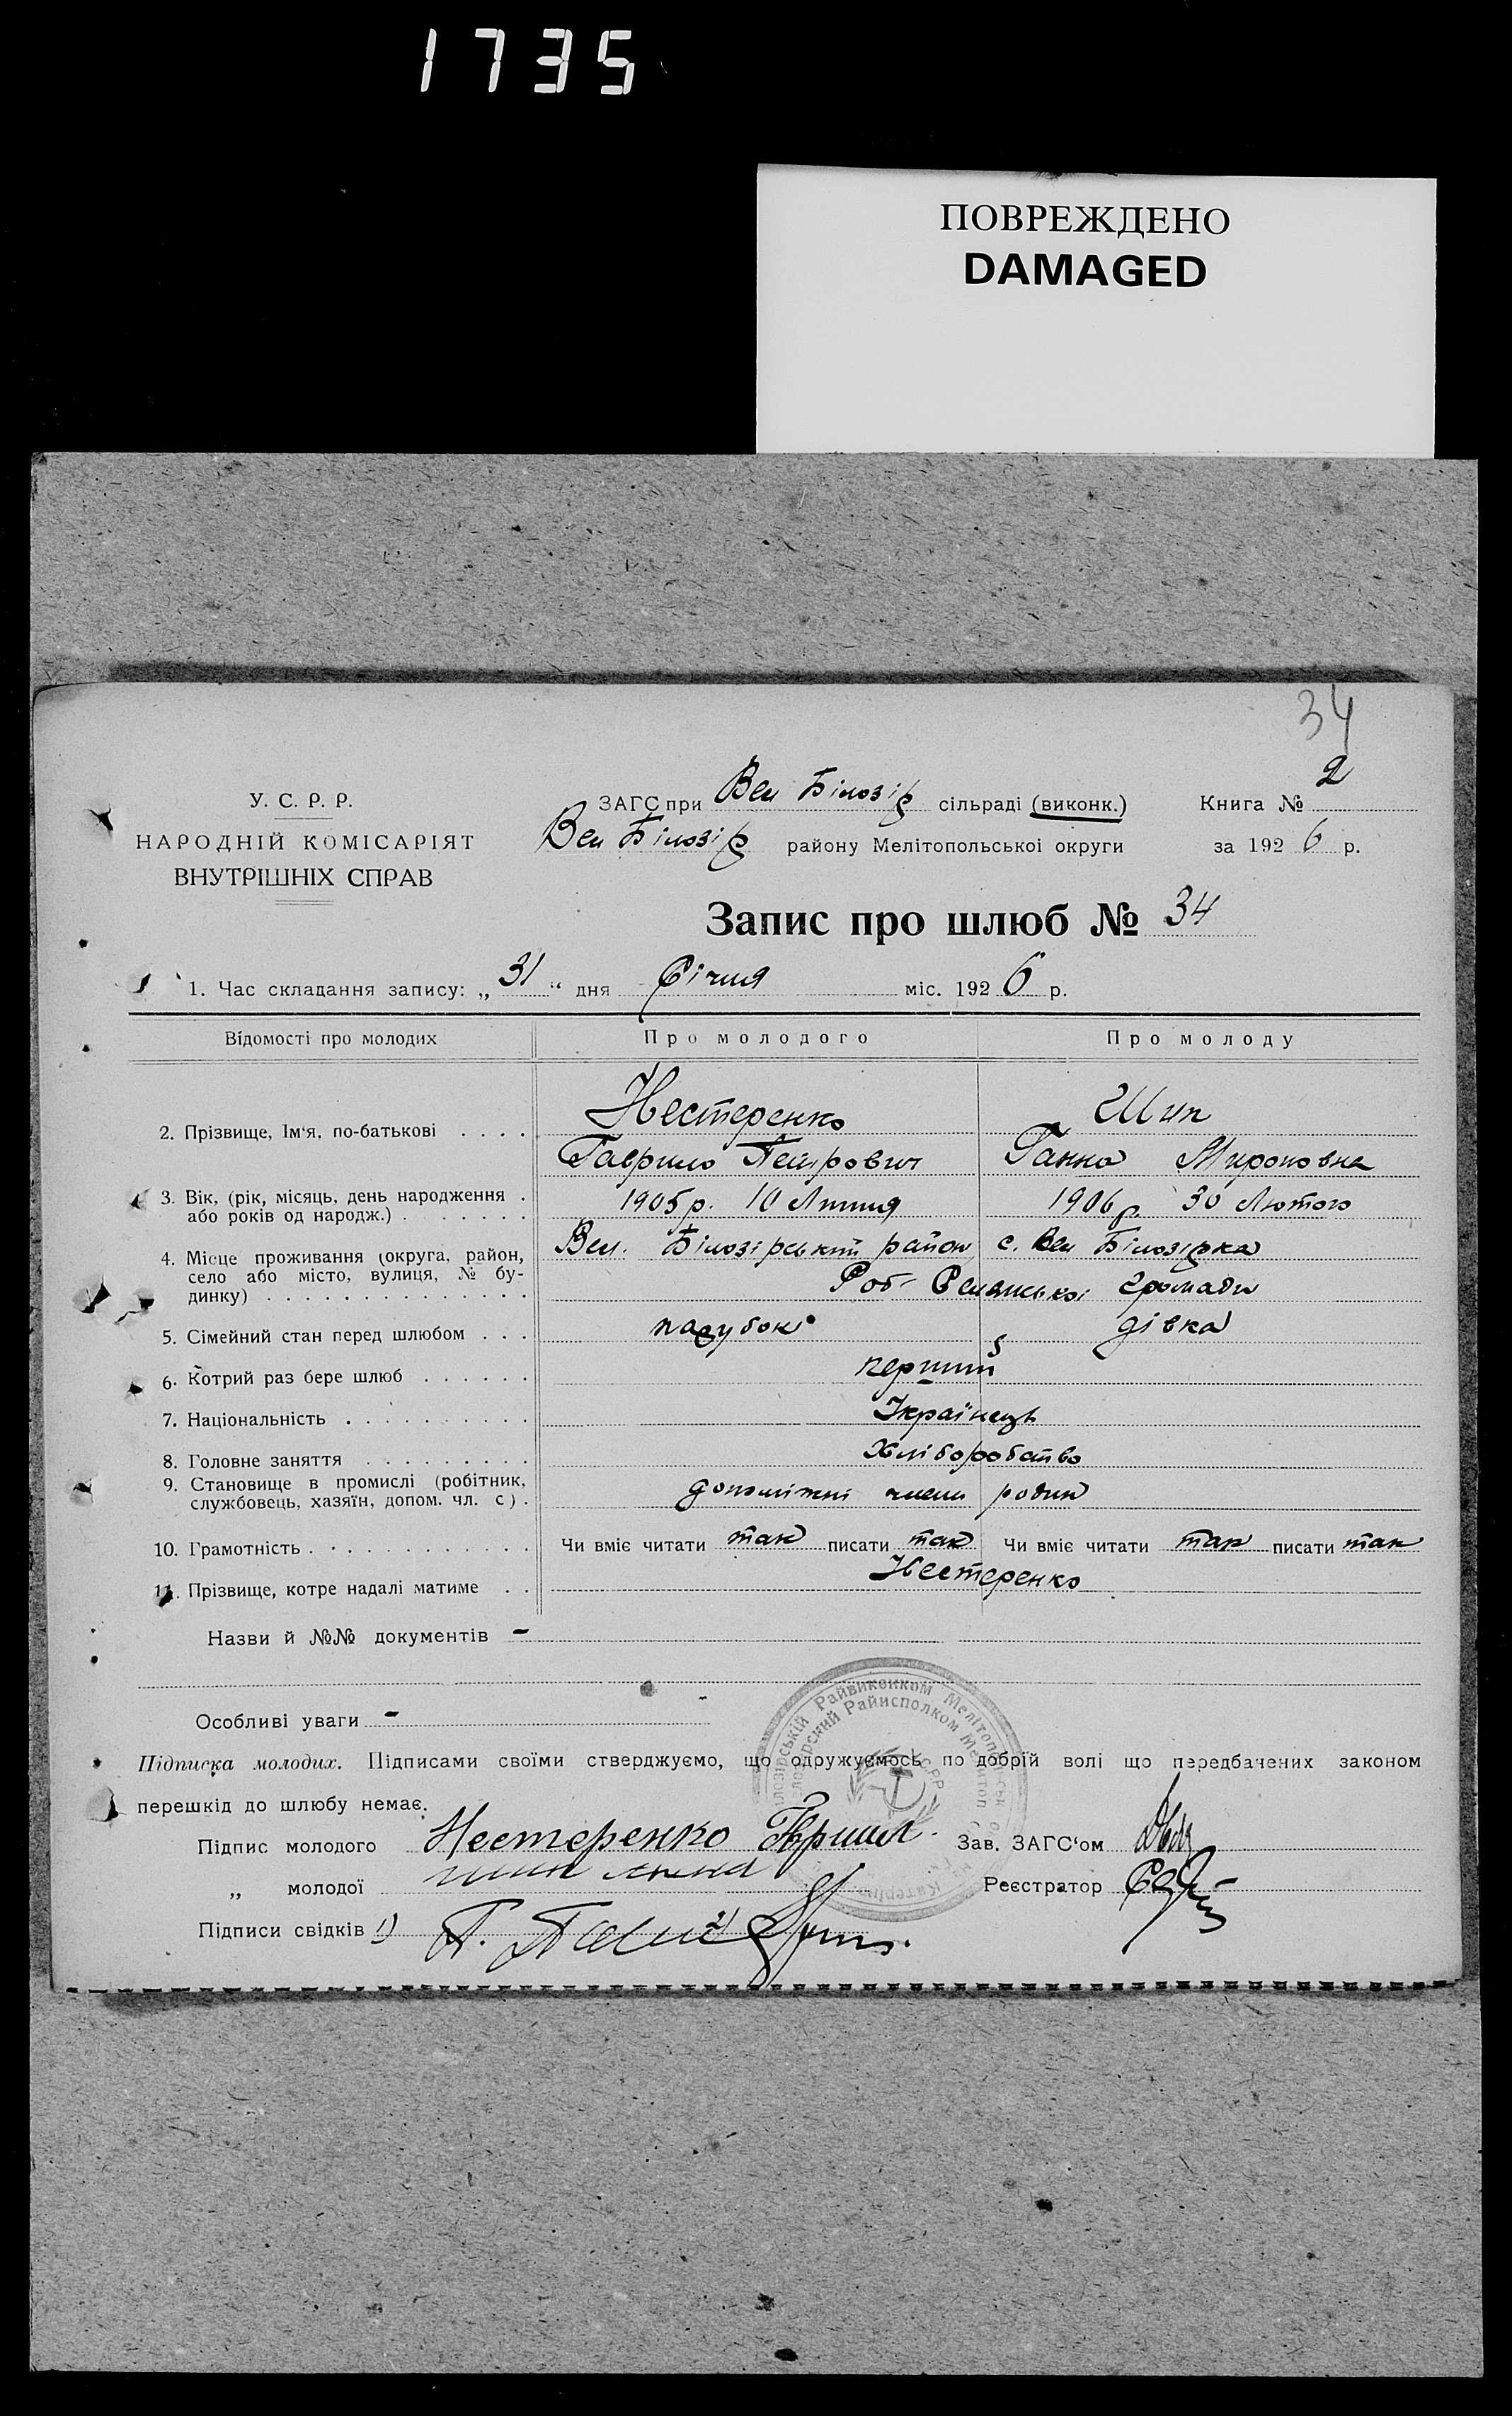 1735
ПОВРЕЖДЕНО
DAMAGED
34
У. С. Р. Р.
НАРОДНІЙ КОМІСАРІЯТ
ВНУТРІШНІХ СПРАВ
ЗАГС при Вел Білозір сільраді (виконк.) Книга № 2
Вел Білозір району Мелітопольської округи за 1926 р.
Запис про шлюб № 34
1. Час складання запису: „31“ дня Січня міс. 1926 р.
Відомості про молодих Про молодого Про молоду
2. Прізвище, Ім'я, по-батькові . . . . Нестеренко Шип
Гаврило Петрович Ганна Мироновна
3. Вік, (рік, місяць, день народження . або років од народж.) . . . . . . . 1905 р. 10 Липня 1906 р. 30 Лютого
4. Місце проживання (округа, район, Вел. Білозірський район с. Вел Білозірка
село або місто, вулиця, № бу-
динку) . . . . . . . . . . . . . . громади
5. Сімейний стан перед шлюбом . . . парубок дівка
6. Котрий раз бере шлюб . . . . . . перший
7. Національність . . . . . . . . . . Українець
8. Головне заняття . . . . . . . . . Хліборобство
9. Становище в промислі (робітник,
службовець, хазяїн, допом. чл. с) . допоміжні члени родин
10. Грамотність . . . . . . . . . . . . Чи вміє читати так писати так Чи вміє читати так писати так
11. Прізвище, котре надалі матиме . . Нестеренко
Назви й №№ документів -
Особливі уваги -
Підписка молодих. Підписами своїми стверджуємо, що одружуємось по добрій волі що передбачених законом
перешкід до шлюбу немає.
Підпис молодого Нестеренко Зав. ЗАГС'ом
„ молодої Реєстратор
Підписи свідків 1) 2)
Райвиконком
Райисполком